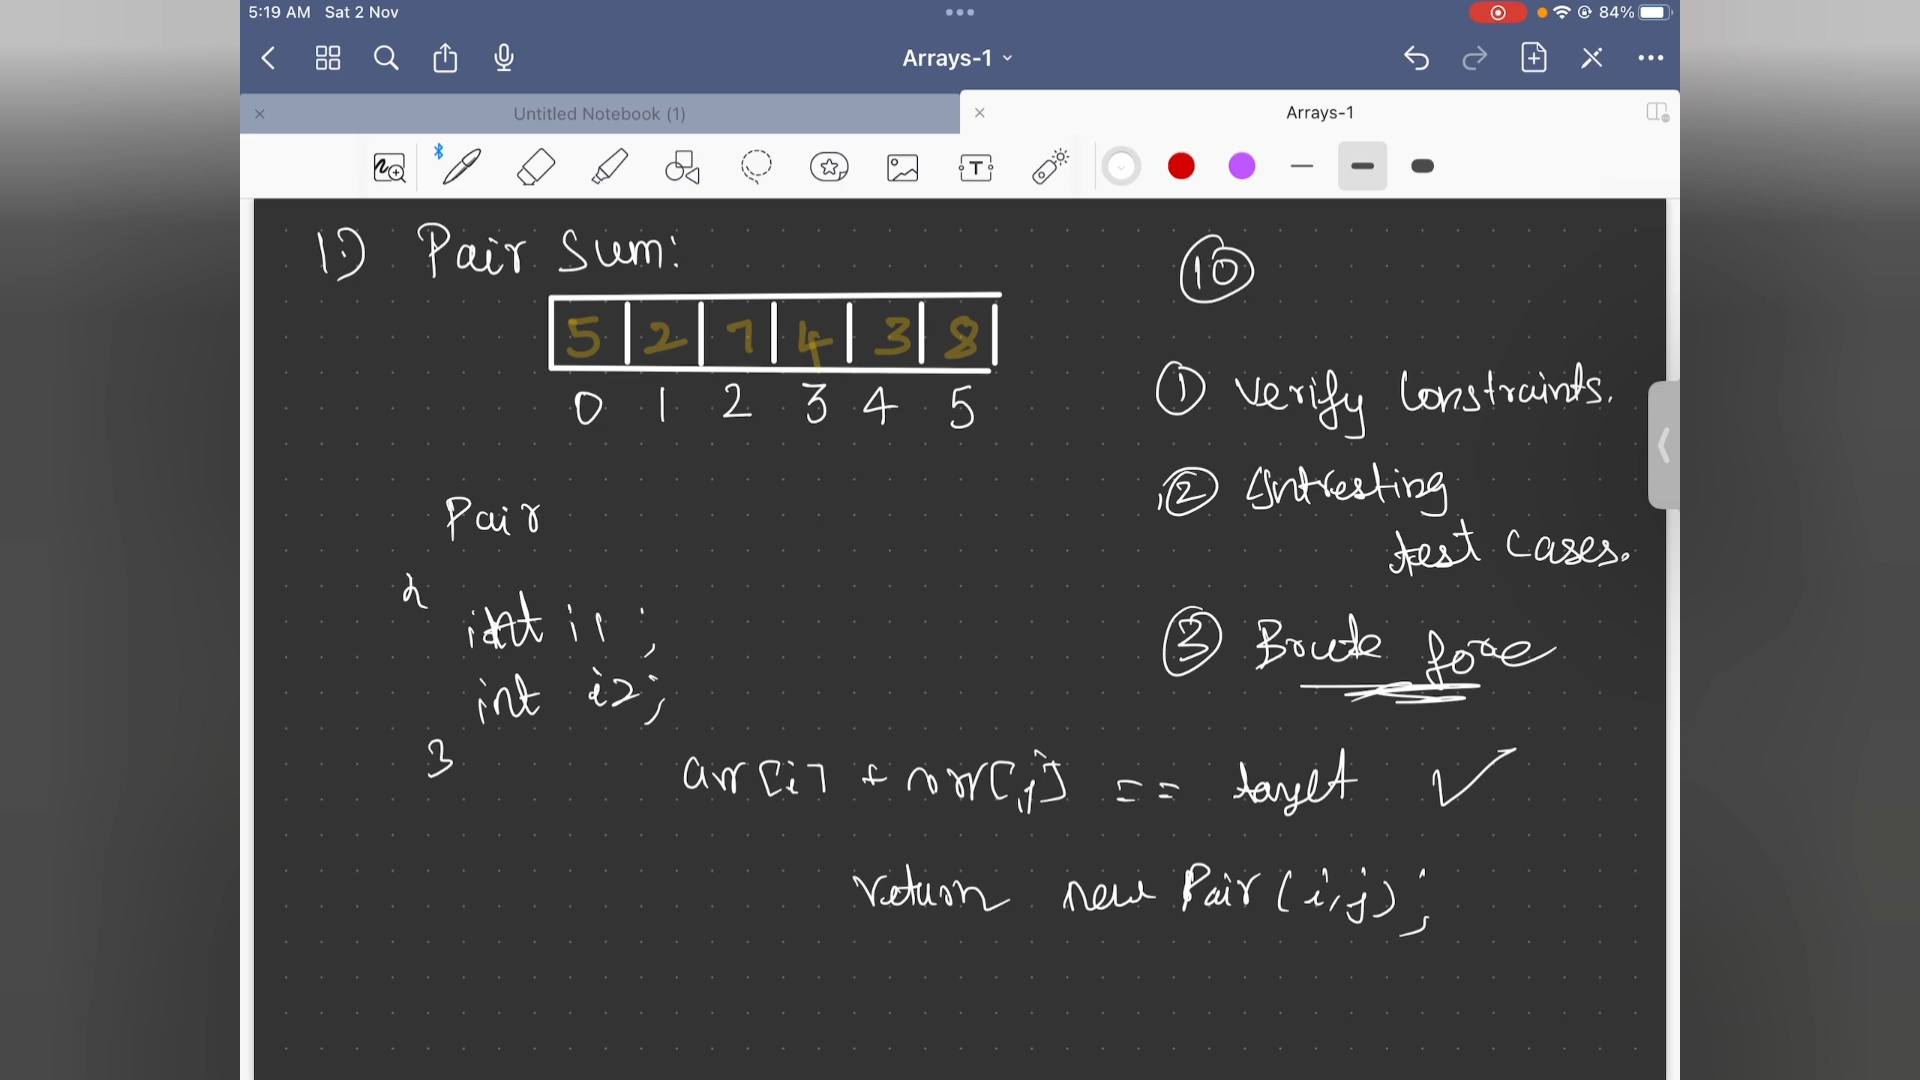 5:19 AM Sat 2 Nov
84%
Arrays-1
Untitled Notebook (1)
Arrays-1
T
1.) Pair Sum:
10
5 2 7 4 3 8
0 1 2 3 4 5
① Verify Constraints.
② Intresting
test cases.
③ Brute force
Pair
{
int i1;
int i2;
}
arr[i] + arr[j] == target ✓
return new Pair(i,j);